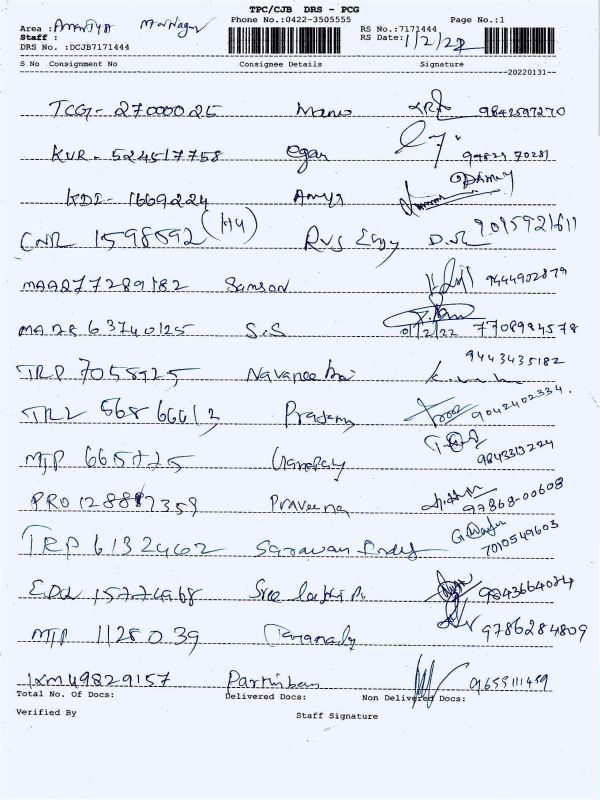 TPC/CJB DRS - PCG
Phone No.:0422-3505555 Page No.:1
Area : Nagar RS No.:7171444
Staff : RS Date: 1/2/22
DRS No. :DCJB7171444
S No Consignment No Consignee Details Signature
20220131
TCG - 27000025 Mano 9842597270
KUR - 524517758 egan
KDI - 1669224 Amya
CNR 1598592 (H4) RVS 9095921611
MAA277289182 Samson 9444902879
MAA28 63740125 S.S 01/2/22 7708984578
TRP 7055525 Navanee 9443435182
568 66613 9042402334.
MTP 665725 Ganapay 9843313224
PRO 128887359 Praveena 97868-00608
TRP 6132462 Saravan 7010549603
EDQ 15774968 Sree 9843664024
MTP 1128039 9786284809
IXM49829157 Parthiban 9655111459
Total No. Of Docs: Delivered Docs: Non Delivered Docs:
Verified By Staff Signature